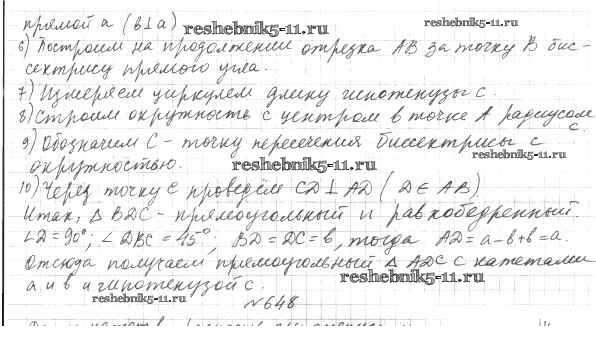 прямой а (b⊥a)
reshebnik5-11.ru
reshebnik5-11.ru
6) Построим на продолжении отрезка AB за точку B бис-
сектрису прямого угла.
7) Измеряем циркулем длину гипотенузы c.
8) Строим окружность с центром в точке A радиусом
c.
9) Обозначим C - точку пересечения биссектрисы с
reshebnik5-11.ru
окружностью.
reshebnik5-11.ru
10) Через точку C проведём CD⊥AD (D∈AB)
Итак, △BDC - прямоугольный и равнобедренный.
∠D=90°, ∠DBC=45°, BD=DC=b, тогда AD=a-b+b=a.
Отсюда получаем прямоугольный △ADC с катетами
reshebnik5-11.ru
a и b и гипотенузой c.
reshebnik5-11.ru
№648